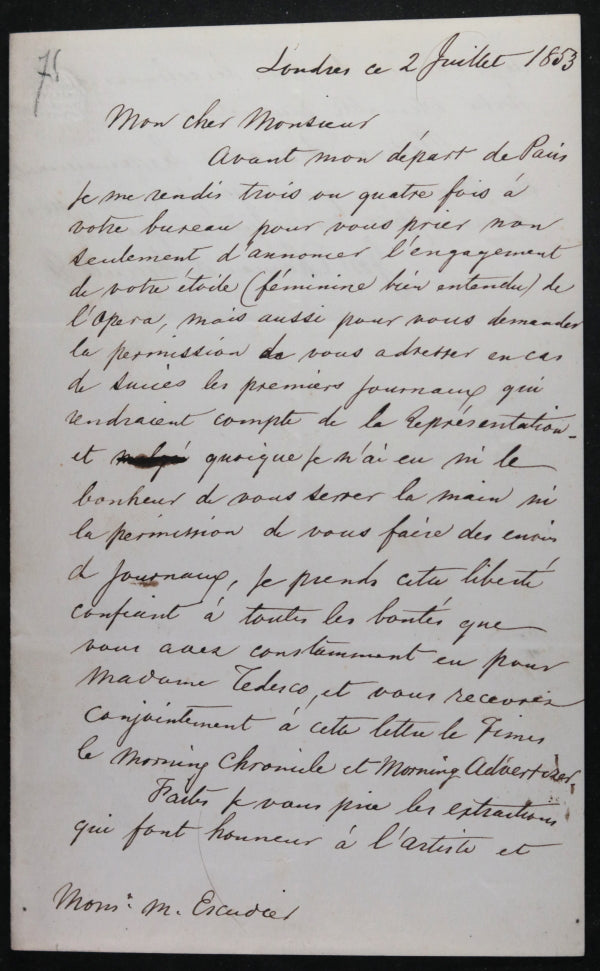 75
Londres ce 2 Juillet 1853
Mon cher Monsieur
Avant mon départ de Paris
Je me rendis trois ou quatre fois à
votre bureau pour vous prier non
seulement d'annoncer l'engagement
de votre étoile (féminine bien entendu) de
l'opera, mais aussi pour vous demander
la permission de vous adresser en cas
de succès les premiers Journaux qui
rendraient compte de la Représentation
et quoique Je n'ai eu ni le
bonheur de vous serrer la main ni
la permission de vous faire des envois
de Journaux, Je prends cette liberté
confiant à toutes les bontés que
vous avez constamment eu pour
Madame Tedesco, et vous recevrez
conjointement à cette lettre le Times
le Morning Chronicle et Morning Advertizer,
Faites Je vous prie les extractions
qui font honneur à l'artiste et
Monsr. M. Escudier